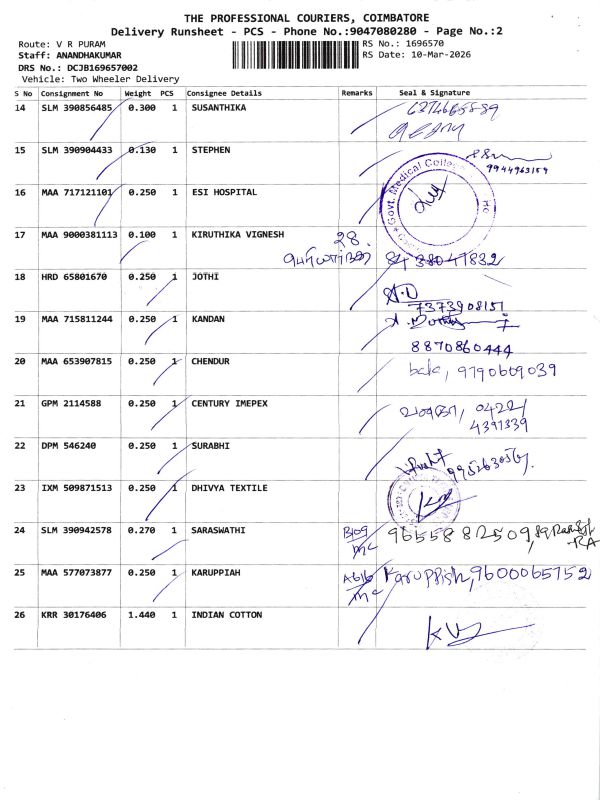 THE PROFESSIONAL COURIERS, COIMBATORE
Delivery Runsheet - PCS - Phone No.:9047080280 - Page No.:2
Route: V R PURAM
RS No.: 1696570
Staff: ANANDHAKUMAR
RS Date: 10-Mar-2026
DRS No.: DCJB169657002
Vehicle: Two Wheeler Delivery
S No Consignment No Weight PCS Consignee Details Remarks Seal & Signature
14 SLM 390856485 0.300 1 SUSANTHIKA
15 SLM 390904433 0.130 1 STEPHEN
9944963159
16 MAA 717121101 0.250 1 ESI HOSPITAL
Govt. Medical College
17 MAA 9000381113 0.100 1 KIRUTHIKA VIGNESH 28.
84 38047832
18 HRD 65801670 0.250 1 JOTHI
7373908151
19 MAA 715811244 0.250 1 KANDAN
8870860444
20 MAA 653907815 0.250 1 CHENDUR
bala, 9790609039
21 GPM 2114588 0.250 1 CENTURY IMEPEX
0422/
4391339
22 DPM 546240 0.250 1 SURABHI
23 IXM 509871513 0.250 1 DHIVYA TEXTILE
24 SLM 390942578 0.270 1 SARASWATHI B109
mc
9655882509
25 MAA 577073877 0.250 1 KARUPPIAH A616 Karuppiah, 9600065752
mc
26 KRR 30176406 1.440 1 INDIAN COTTON